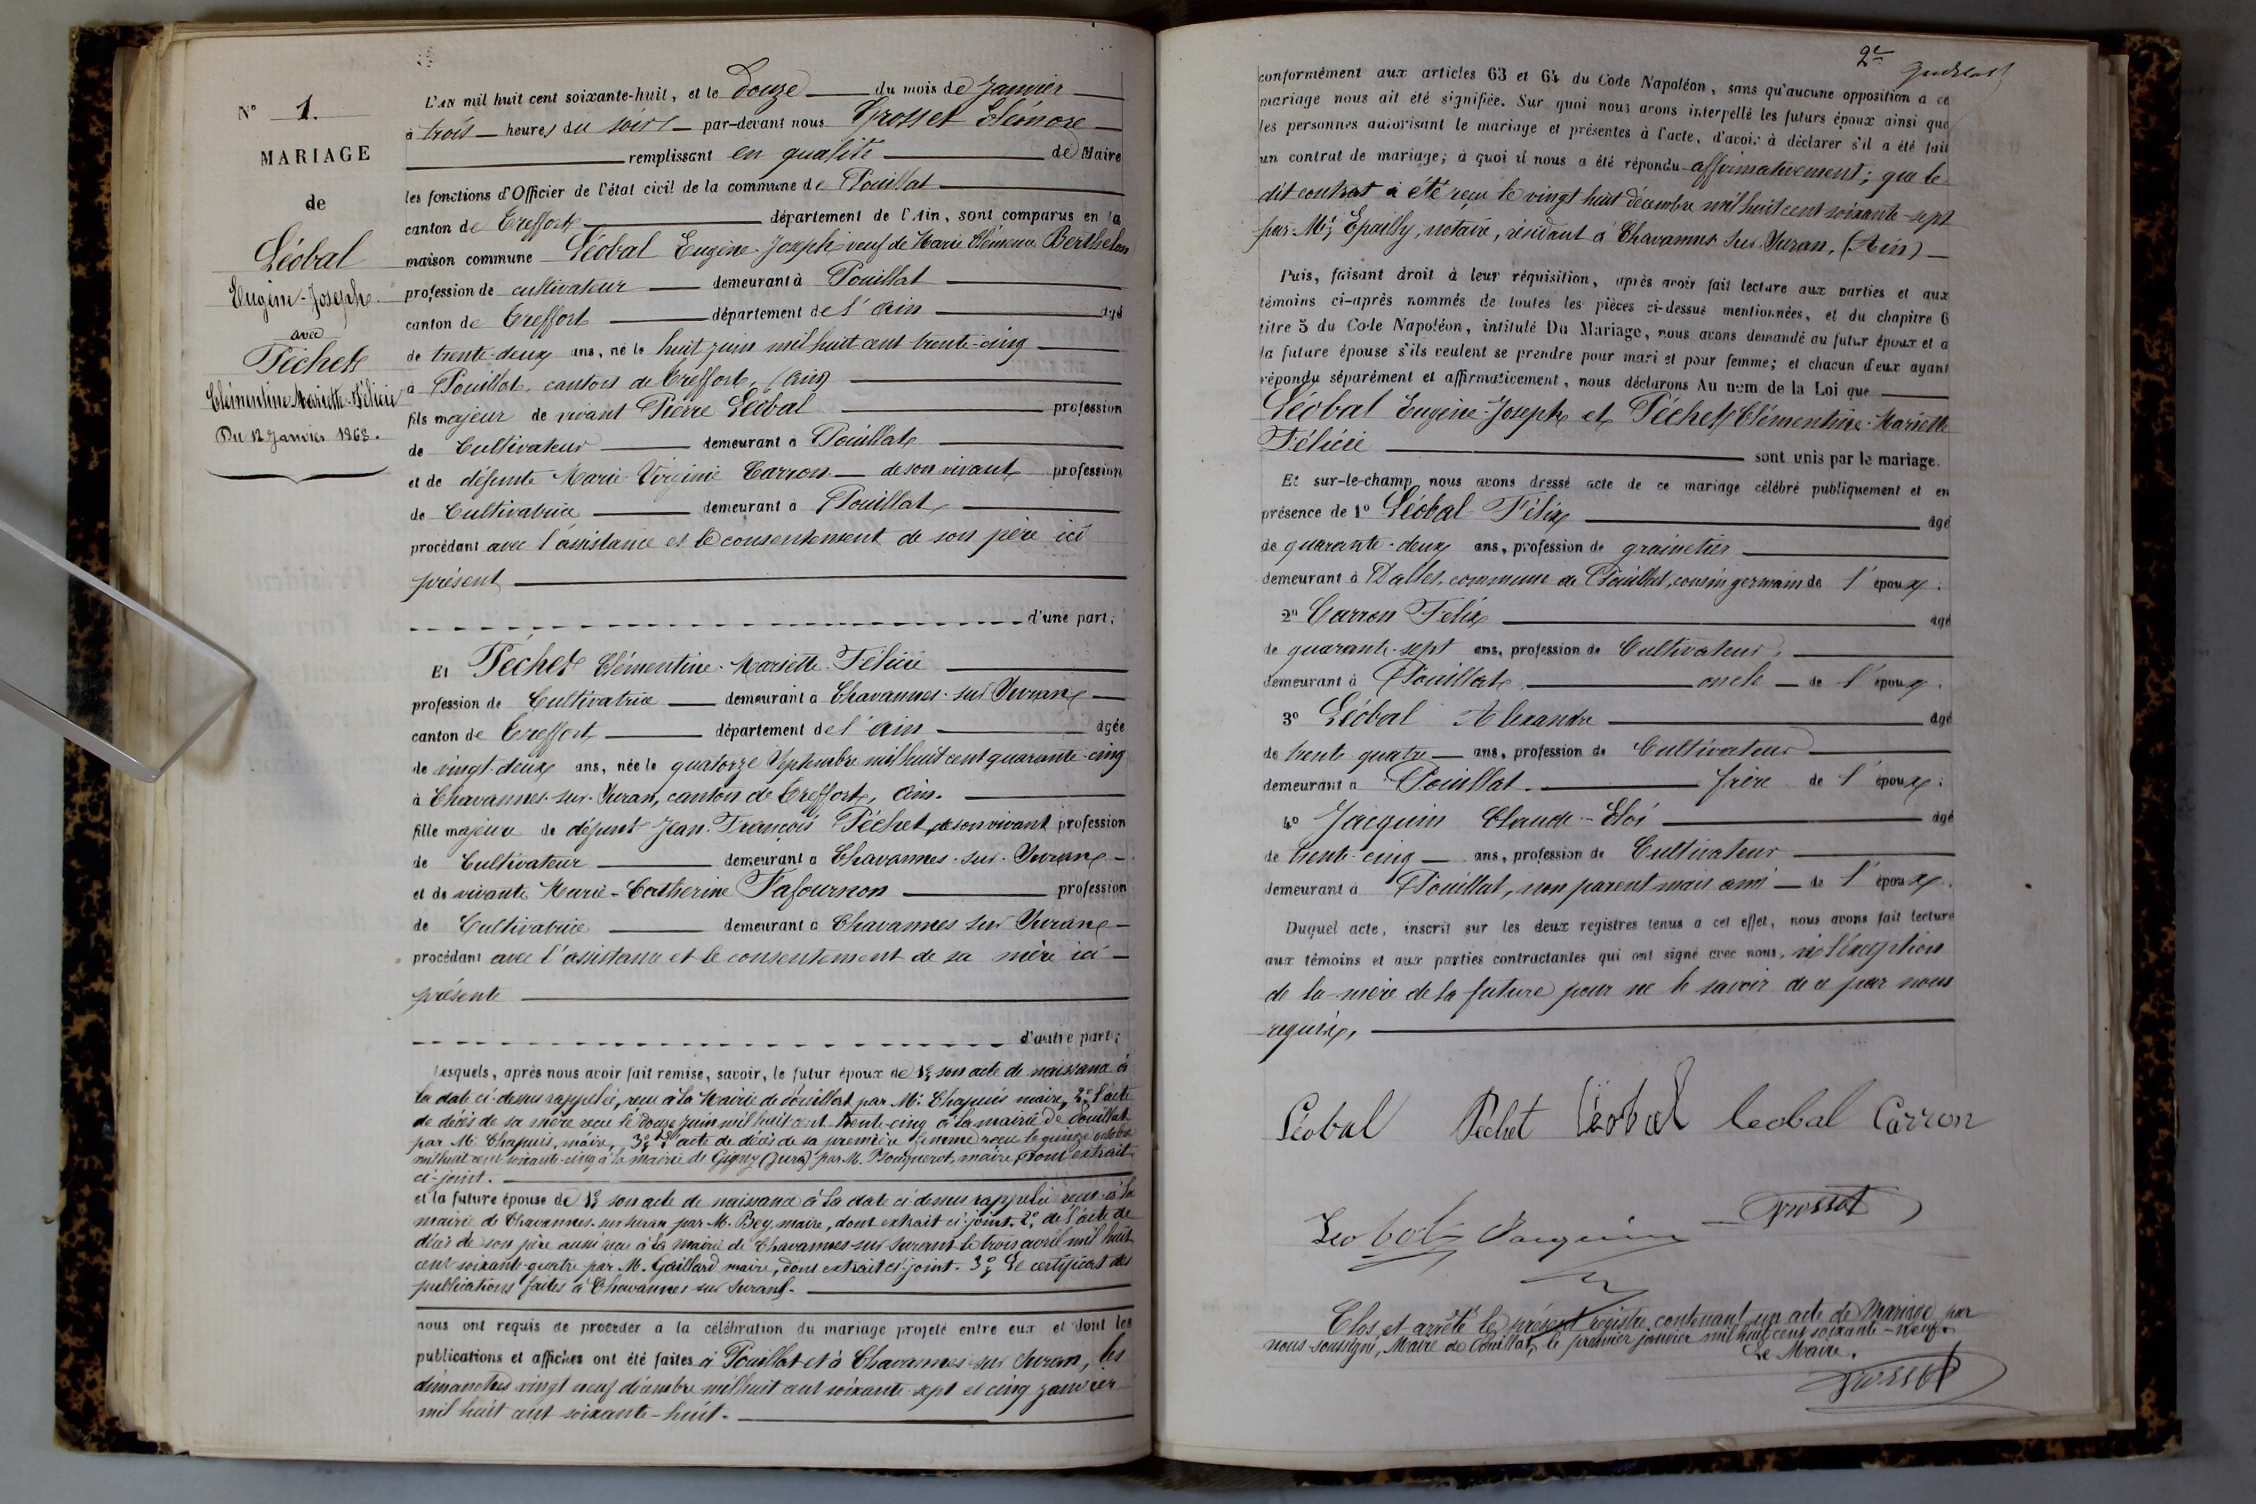 N° 1.
MARIAGE
de
Léobal
Eugène-Joseph
avec
Péchet
Clémentine Mariette Félicie
Du 12 Janvier 1868.
L'AN mil huit cent soixante-huit, et le Douze du mois de Janvier
à trois heures du soir par-devant nous Grosset Eléonore
remplissant en qualité de Maire
les fonctions d'Officier de l'état civil de la commune de Pouillat
canton de Treffort département de l'Ain, sont comparus en la
maison commune Léobal Eugène-Joseph veuf de Marie Clémence Berthelon
profession de cultivateur demeurant à Pouillat
canton de Treffort département de l'Ain âgé
de trente-deux ans, né le huit juin mil huit cent trente-cinq
à Pouillat, canton de Treffort, (Ain)
fils majeur de vivant Pierre Léobal profession
de Cultivateur demeurant à Pouillat
et de défunte Marie Virginie Carron de son vivant profession
de Cultivatrice demeurant à Pouillat
procédant avec l'assistance et le consentement de son père ici
présent
d'une part;
Et Péchet Clémentine-Mariette-Félicie
profession de Cultivatrice demeurant à Chavannes-sur-Suran
canton de Treffort département de l'Ain âgée
de vingt-deux ans, née le quatorze Septembre mil huit cent quarante-cinq
à Chavannes-sur-Suran, canton de Treffort, Ain.
fille majeure de défunt Jean-François Péchet, de son vivant profession
de Cultivateur demeurant à Chavannes-sur-Suran
et de vivante Marie-Catherine Fafournon profession
de Cultivatrice demeurant à Chavannes sur Suran
procédant avec l'assistance et le consentement de sa mère ici
présente
d'autre part;
Lesquels, après nous avoir fait remise, savoir, le futur époux de 1° son acte de naissance à
la date ci-dessus rappelée, reçu à la Mairie de Pouillat par Mr Chapuis maire, 2° l'acte
de décès de sa mère reçu le douze juin mil huit cent trente-cinq à la mairie de Pouillat
par M. Chapuis, maire, 3° l'acte de décès de sa première femme reçu le quinze octobre
mil huit cent soixante-cinq à la mairie de Gigny (Jura) par M. maire, dont extrait
ci-joint.
et la future épouse de 1° son acte de naissance à la date ci dessus rappelée reçu à la
mairie de Chavannes-sur-Suran par M. Bey, maire, dont extrait ci-joint. 2° de l'acte de
décès de son père aussi reçu à la mairie de Chavannes-sur Suran le trois avril mil huit
cent soixante-quatre par M. Gaillard maire, dont extrait ci-joint. 3° Le certificat des
publications faites à Chavannes-sur Suran.
nous ont requis de procéder à la célébration du mariage projeté entre eux et dont les
publications et affiches ont été faites à Pouillat et à Chavannes-sur Suran, les
dimanches vingt neuf décembre mil huit cent soixante-sept et cinq janvier
mil huit cent soixante-huit.
2e
conformément aux articles 63 et 64 du Code Napoléon, sans qu'aucune opposition à ce
mariage nous ait été signifiée. Sur quoi nous avons interpellé les futurs époux ainsi que
les personnes autorisant le mariage et présentes à l'acte, d'avoir à déclarer s'il a été fait
un contrat de mariage; à quoi il nous a été répondu affirmativement; que le
dit contrat a été reçu le vingt huit décembre mil huit cent soixante-sept
par Me Epailly, notaire, résidant à Chavannes sur Suran, (Ain)
Puis, faisant droit à leur réquisition, après avoir fait lecture aux parties et aux
témoins ci-après nommés de toutes les pièces ci-dessus mentionnées, et du chapitre 6
titre 5 du Code Napoléon, intitulé Du Mariage, nous avons demandé au futur époux et à
la future épouse s'ils veulent se prendre pour mari et pour femme; et chacun d'eux ayant
répondu séparément et affirmativement, nous déclarons Au nom de la Loi que
Léobal Eugène-Joseph et Péchet Clémentine-Mariette
Félicie sont unis par le mariage.
Et sur-le-champ nous avons dressé acte de ce mariage célébré publiquement et en
présence de 1° Léobal Félix âgé
de quarante-deux ans, profession de grainetier
demeurant à commune de Pouillat, cousin germain de l'époux.
2° Carron Félix âgé
de quarante-sept ans, profession de Cultivateur,
demeurant à Pouillat oncle de l'époux.
3° Léobal Alexandre âgé
de trente quatre ans, profession de Cultivateur
demeurant à Pouillat. frère de l'époux.
4° Jacquin Claude-Eloi âgé
de trente-cinq ans, profession de Cultivateur
demeurant à Pouillat, non parent mais ami de l'époux.
Duquel acte, inscrit sur les deux registres tenus à cet effet, nous avons fait lecture
aux témoins et aux parties contractantes qui ont signé avec nous, à l'exception
de la mère de la future pour ne le savoir de ce par nous
requise,
Léobal Péchet Léobal Leobal Carron
Leobal Jacquin Grosset
Clos et arrêté le présent registre contenant un acte de Mariage par
nous soussigné, Maire de Pouillat, le premier janvier mil huit cent soixante-neuf.
Le Maire.
Grosset